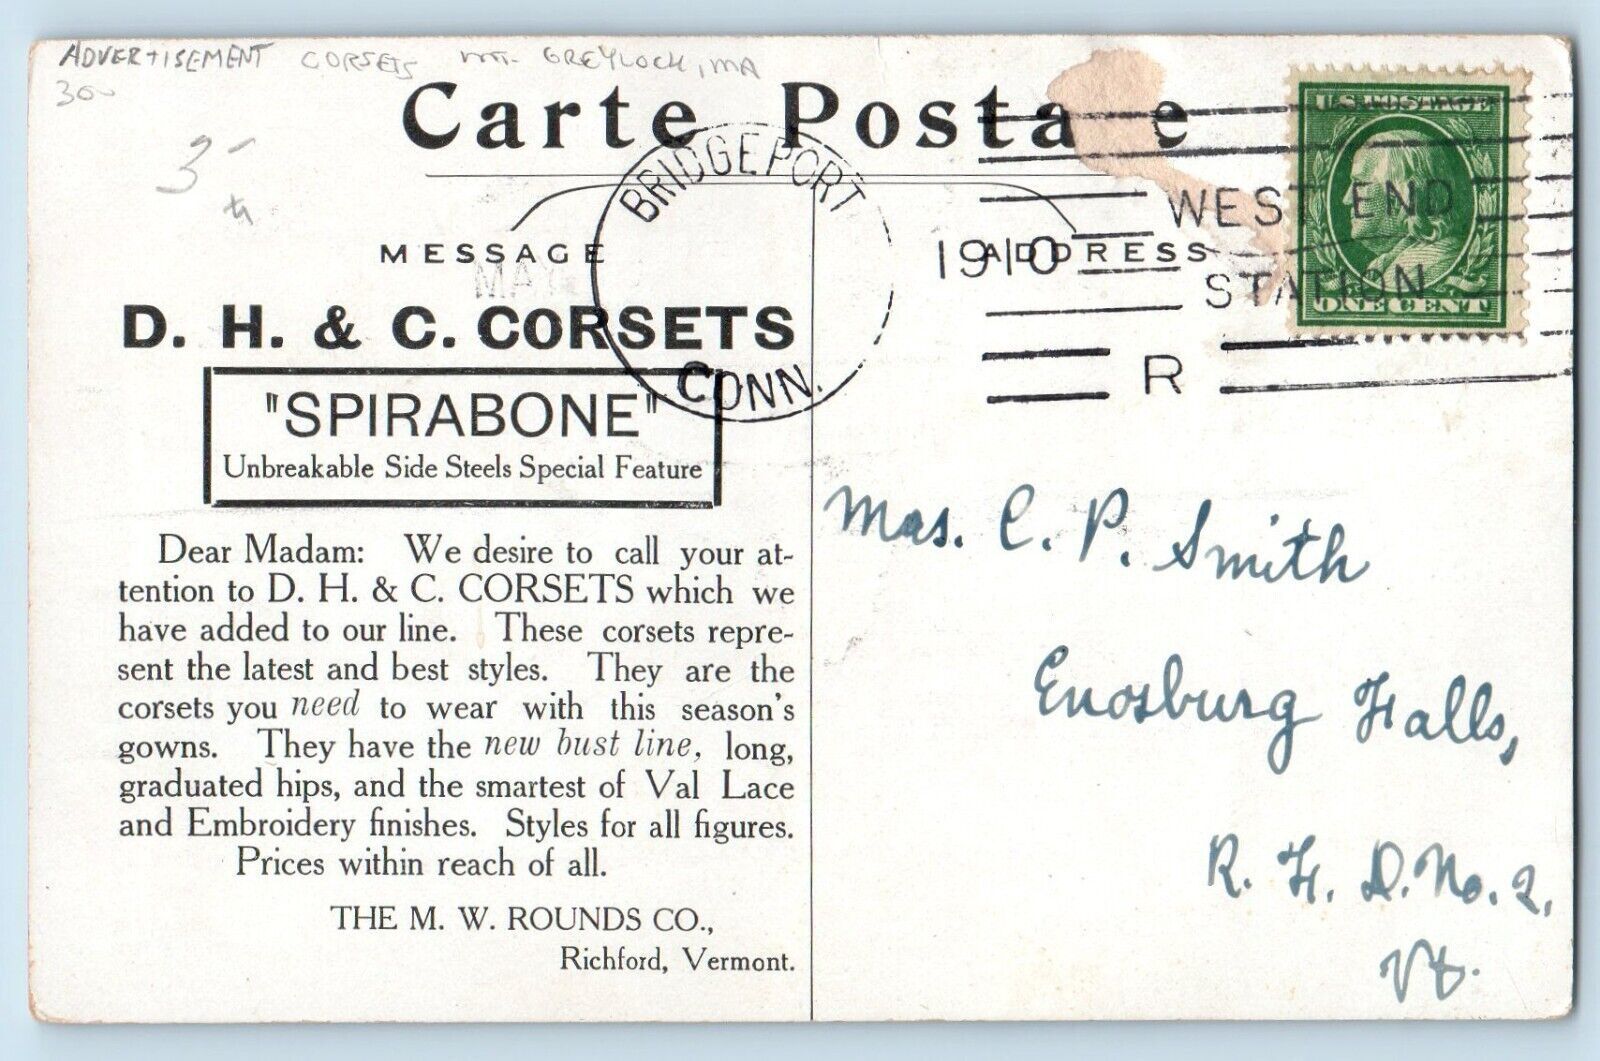 ADVERTISEMENT CORSETS MT. GREYLOCK, MA
30-
3-
Carte Postale
BRIDGEPORT
CONN.
MAY
1910
WEST END
STATION
R
U.S. POSTAGE
ONE CENT
MESSAGE
ADDRESS
D. H. & C. CORSETS
"SPIRABONE"
Unbreakable Side Steels Special Feature
Dear Madam: We desire to call your at-
tention to D. H. & C. CORSETS which we
have added to our line. These corsets repre-
sent the latest and best styles. They are the
corsets you need to wear with this season's
gowns. They have the new bust line, long,
graduated hips, and the smartest of Val Lace
and Embroidery finishes. Styles for all figures.
Prices within reach of all.
THE M. W. ROUNDS CO.,
Richford, Vermont.
Mrs. C. P. Smith
Enosburg Falls,
R. F. D. No. 2,
Vt.